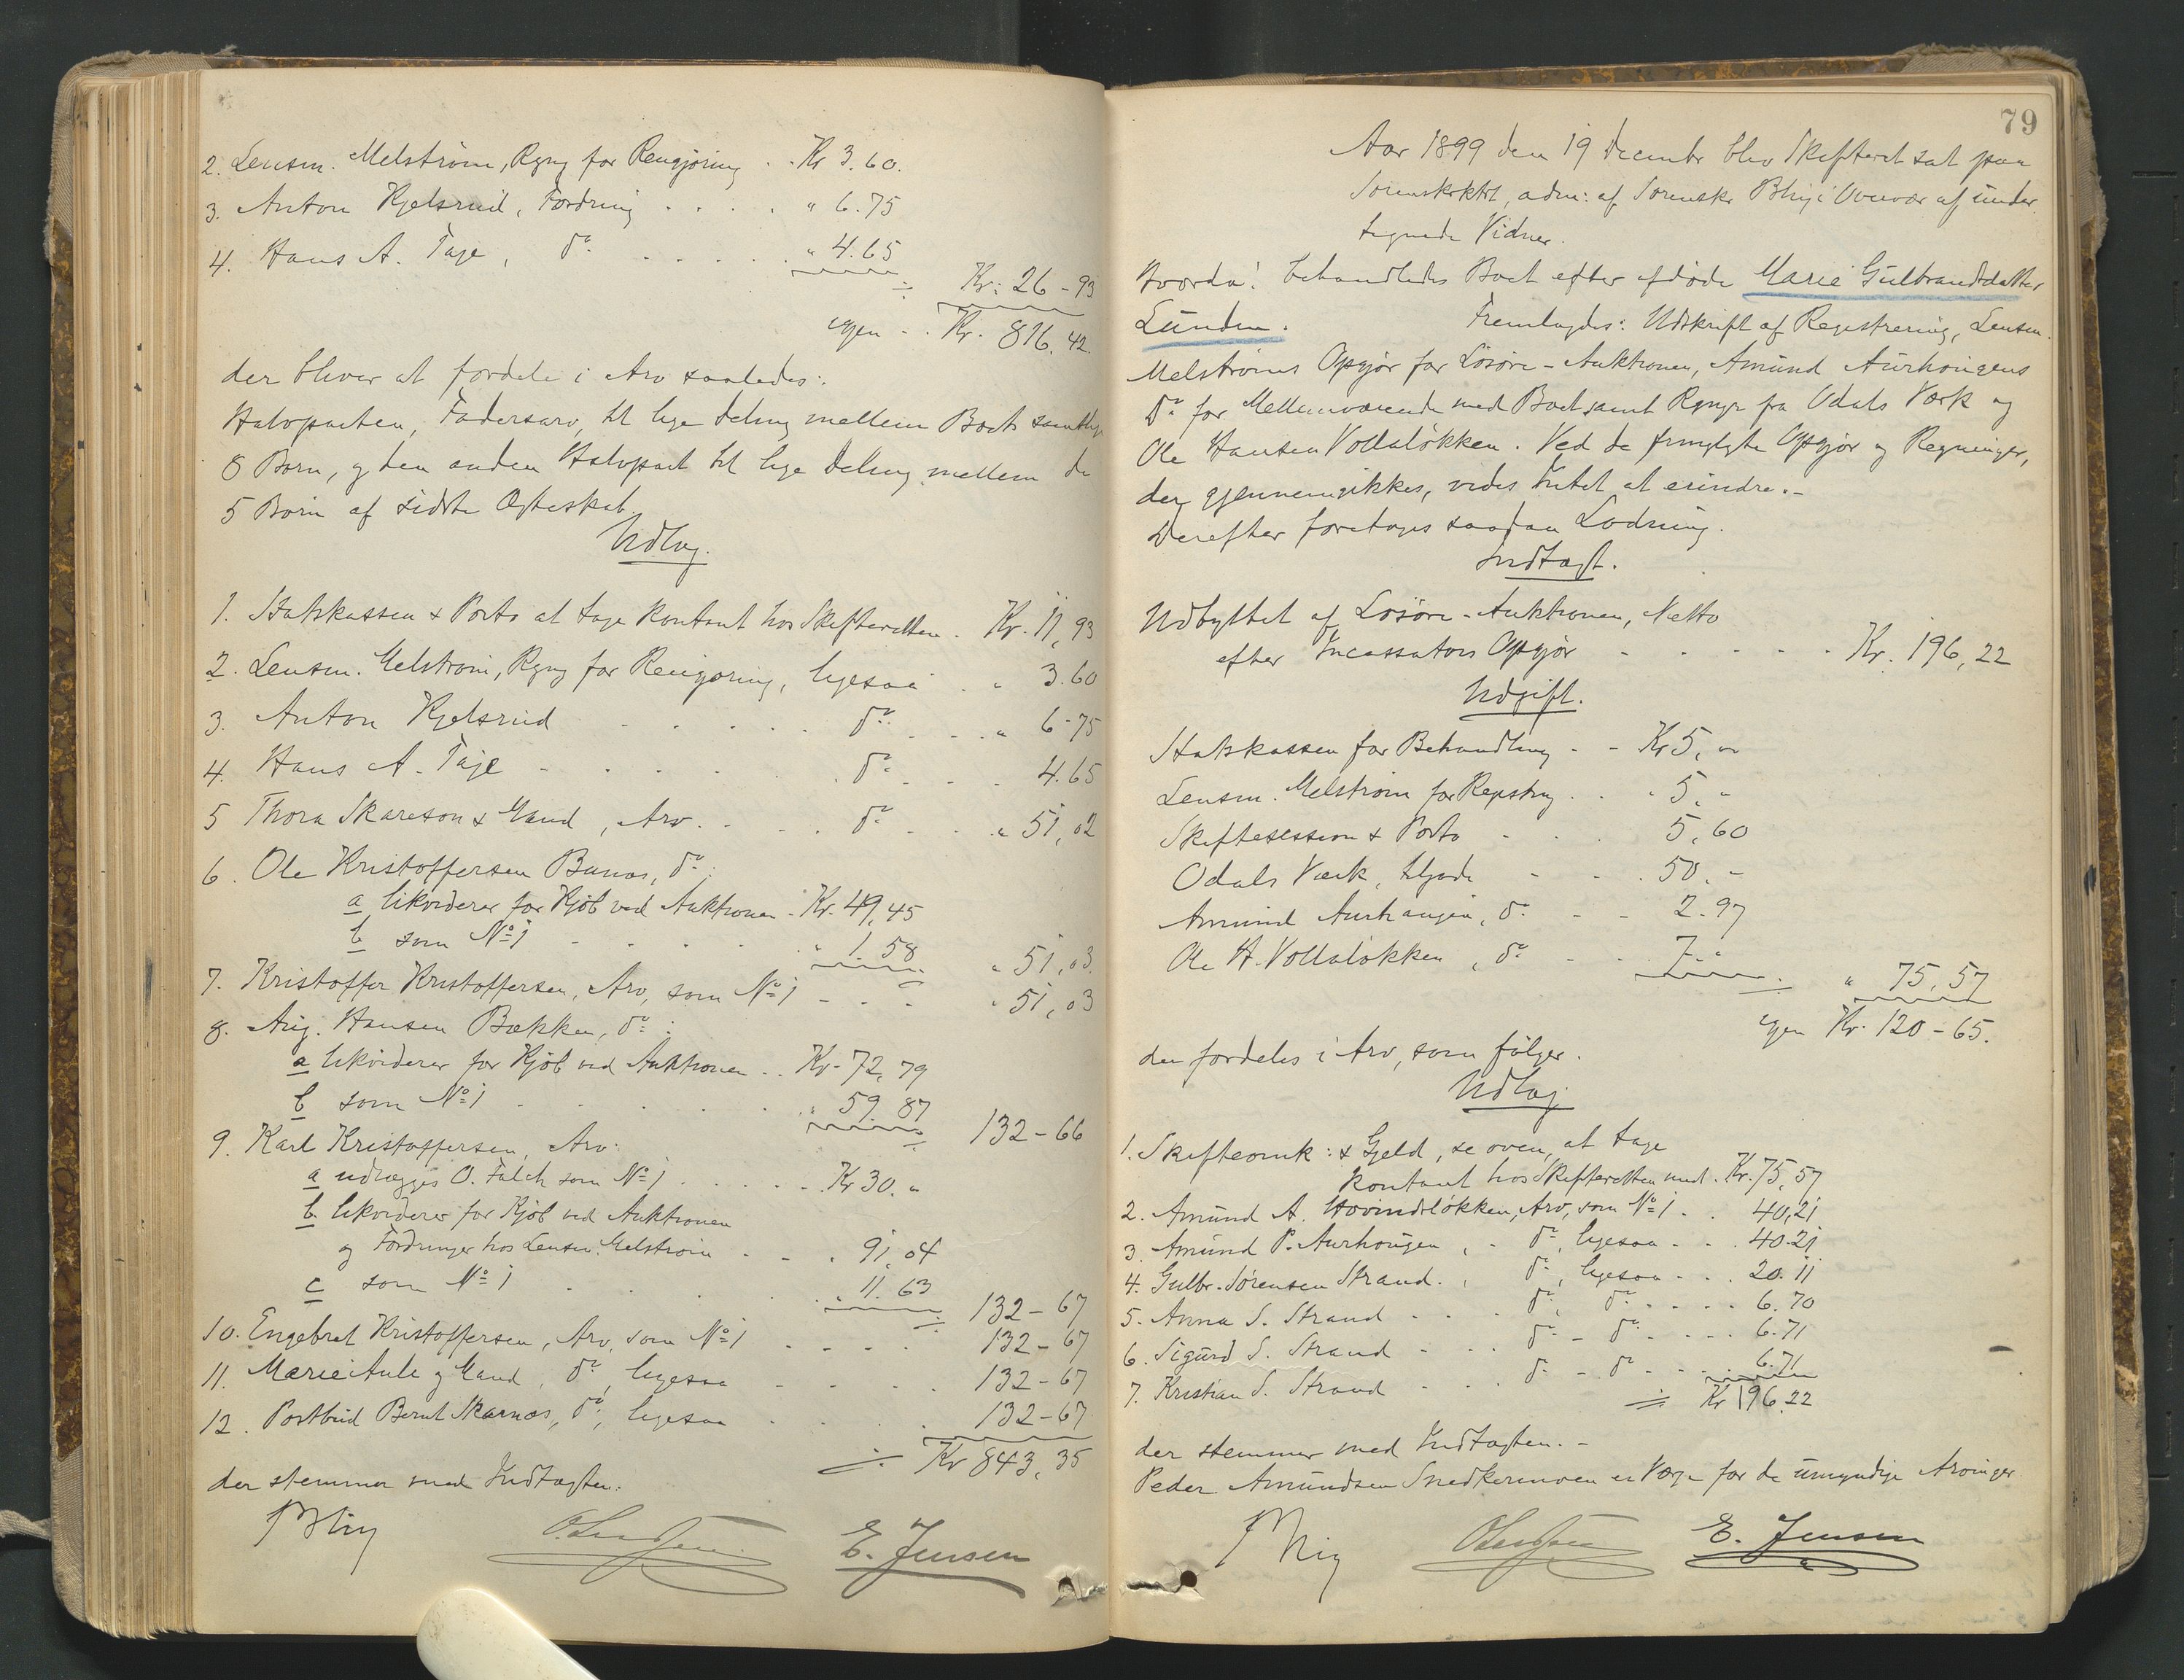 2. Lensm. Melström, Rgng for Rengjöring . . Kr 3.60.
3. Anton Kjelsrud, Fordring . . . . " 6.75
4. Hans A. Taje, do . . . . . " 4.65
÷ Kr: 26-93
igjen - . Kr. 816.42.
der bliver at fordele i Arv saaledes:
Halvparten, Fadersarv, til lige Deling mellem Boets samtlige
8 Børn, og den anden Halvpart til lige Deling mellem de
5 Børn af sidste Ægteskab.
Udlæg.
1. Statskassen & Porto at tage kontant hos Skifteretten . Kr. 11,93
2. Lensm. Melström, Rgng for Rengjøring, ligesaa . " 3.60
3. Anton Kjelsrud . . . . . do . . . " 6-75
4. Hans A. Taje - . . . . . do . . . 4.65
5 Thora Skareson & Mand, Arv. - . . do . . . " 51,02
6. Ole Kristoffersen Bunæs, do:
a likviderer for Kjöb ved Auktionen . Kr. 49,45
b som No 1 - . . . . . " 1.58 " 51,03
7. Kristoffer Kristoffersen, Arv, som No 1 - . . " 51,03
8. Aug. Hansen Bækken, do:
a likviderer for Kjöb ved Auktionen . . Kr- 72,79
b som No 1 . . . . . . " 59.87 132-66
9. Karl Kristoffersen, Arv:
a udlægges O. Falch som No 1 . . . . . Kr 30. "
b. likviderer for Kjöb ved Auktionen
og Fordringer hos Lensm. Melström - . . 91,04
c som No 1 . . . . . " 11.63 132-67
10. Engebret Kristoffersen, Arv, som No 1 . . . . 132-67
11. Marie Aule og Mand, do, ligesaa - . . . 132-67
12. Postbud Bernt Skarnæs, do, ligesaa . . . . 132-67
÷ Kr 843,35
der stemmer med Indtægten.
Blig
E. Jensen
79
Aar 1899 den 19 Decembr blev Skifteret sat paa
Sorenskrktrt, adm: af Sorenskr Blig i Overvær af under
tegnede Vidner.
Hvorda! behandledes Boet efter afdöde Marie Gulbrandsdatter
Lunden. Fremlagdes: Udskrift af Registrering, Lensm.
Melströms Opgjør for Lösöre-Auktionen, Amund Aurhougens
Do for Mellemværende med Boet samt Rgnger fra Odals Værk og
Ole Hansen Vollalökken. Ved de fremlagte Opgjør og Regninger,
der gjennemgikkes, vides Intet at erindre.-
Derefter foretages saadan Lodning.
Indtægt.
Udbyttet af Lösöre-Auktionen, Netto
efter Incassators Opgjør - . . . . . Kr. 196,22
Udgift.
Statskassen for Behandling - - Kr 5, "
Lensm. Melström for Regstrng . . " 5. "
Skiftesession & Porto - . . 5,60
Odals Værk, tilgode - . . 50. -
Amund Aurhaugen, do - - 2.97
Ole H. Vollalökken, do - . 7. " " 75,57
igjen Kr. 120-65.
der fordeles i Arv, som fölger.
Udlæg
1. Skifteomk: & Gjeld, se oven, at tage
kontant hos Skifteretten med . Kr. 75,57
2. Amund A. Hovindslökken, Arv, som No 1 . . 40,21
3. Amund P. Aurhougen, - do, ligesaa - . . 40.21
4. Gulbr. Sørensen Strand. , do, ligesaa - . . 20.11
5. Anna S. Strand - . . . do, do . . . . 6.70
6. Sigurd S. Strand - . . do - do . . . 6.71
7. Kristian S. Strand - . . . do - do . . . 6.71
÷ Kr 196.22
der stemmer med Indtægten.-
Peder Amundsen Snedkermoen er Værge for de umyndige Arvinger
Blig
E. Jensen